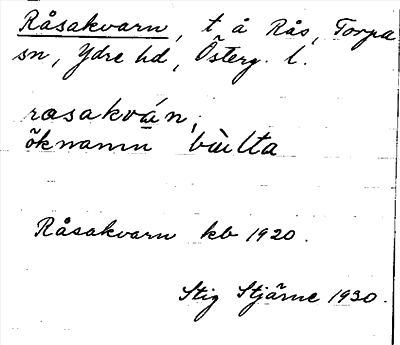 Råsakvarn, t å Rås, Torpa
sn, Ydre hd, Österg. l.
rasakván,
öknamn bùlta
Råsakvarn kb 1920.
Stig Stjärne 1930.